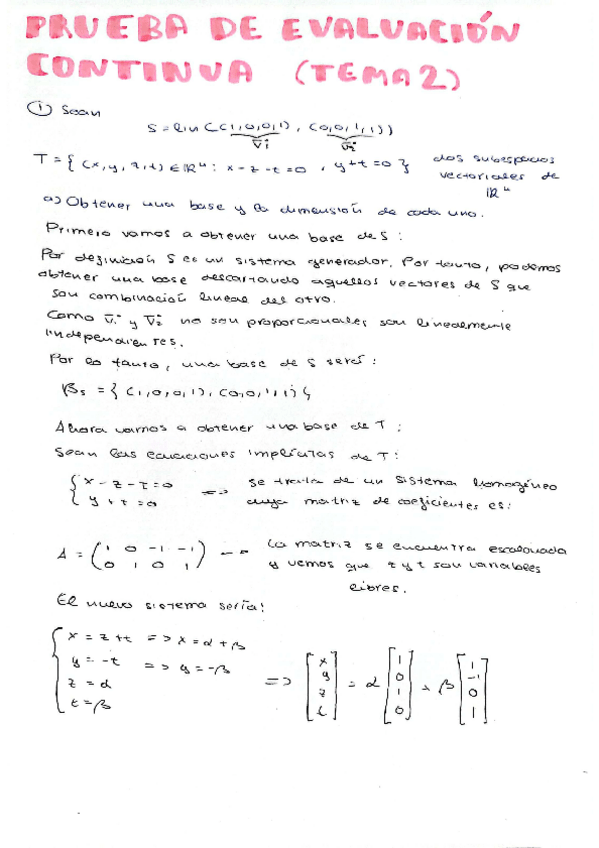 PRUEBA DE EVALUACIÓN
CONTINUA (TEMA 2)
① Sean
S = lin ((1,0,0,1), (0,0,1,1))
v̄₁ v̄₂
T = { (x,y,z,t) ∈ ℝ⁴ : x - z - t = 0 , y + t = 0 } dos subespacios
vectoriales de
ℝ⁴
a) Obtener una base y la dimensión de cada uno.
Primero vamos a obtener una base de S:
Por definición S es un sistema generador. Por tanto, podemos
obtener una base descartando aquellos vectores de S que
son combinación lineal del otro.
Como v̄₁ y v̄₂ no son proporcionales son linealmente
independientes.
Por lo tanto, una base de S será:
βs = { (1,0,0,1), (0,0,1,1) }
Ahora vamos a obtener una base de T:
Sean las ecuaciones implícitas de T:
{ x - z - t = 0 => se trata de un sistema homogéneo
y + t = 0 cuya matriz de coeficientes es:
A = ( 1 0 -1 -1 ) → La matriz se encuentra escalonada
0 1 0 1 y vemos que z y t son variables
libres.
El nuevo sistema sería:
{ x = z + t => x = α + β
y = -t => y = -β
z = α
t = β
=> [ x y z t ] = α [ 1 0 1 0 ] + β [ 1 -1 0 1 ]